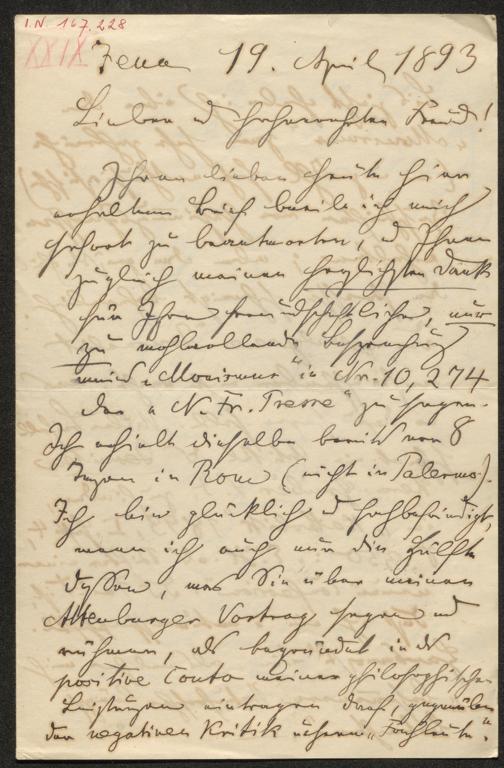 I.N. 167.228
XXIX
Jena 19. April 1893
Lieber u hochverehrter Freund!
Ihren lieben heute hier
erhaltenen Brief beeile ich mich
sofort zu beantworten, u Ihnen
zugleich meinen herzlichsten Dank
für Ihre freundschaftliche, nur
zu wohlwollende Besprechung
meines „Monismus" in Nr. 10,274
der „N. Fr. Presse" zu sagen.
Ich erhielt dieselbe bereits vor 8
Tagen in Rom (nicht in Palermo).
Ich bin glücklich u hochbefriedigt,
wenn ich auch nur die Hälfte
dessen, was Sie über meinen
Altenburger Vortrag sagen und
rühmen, als begründet in das
positive Conto meiner philosophischen
Leistungen eintragen darf, gegenüber
der negativen Kritik unserer „Fachleute".